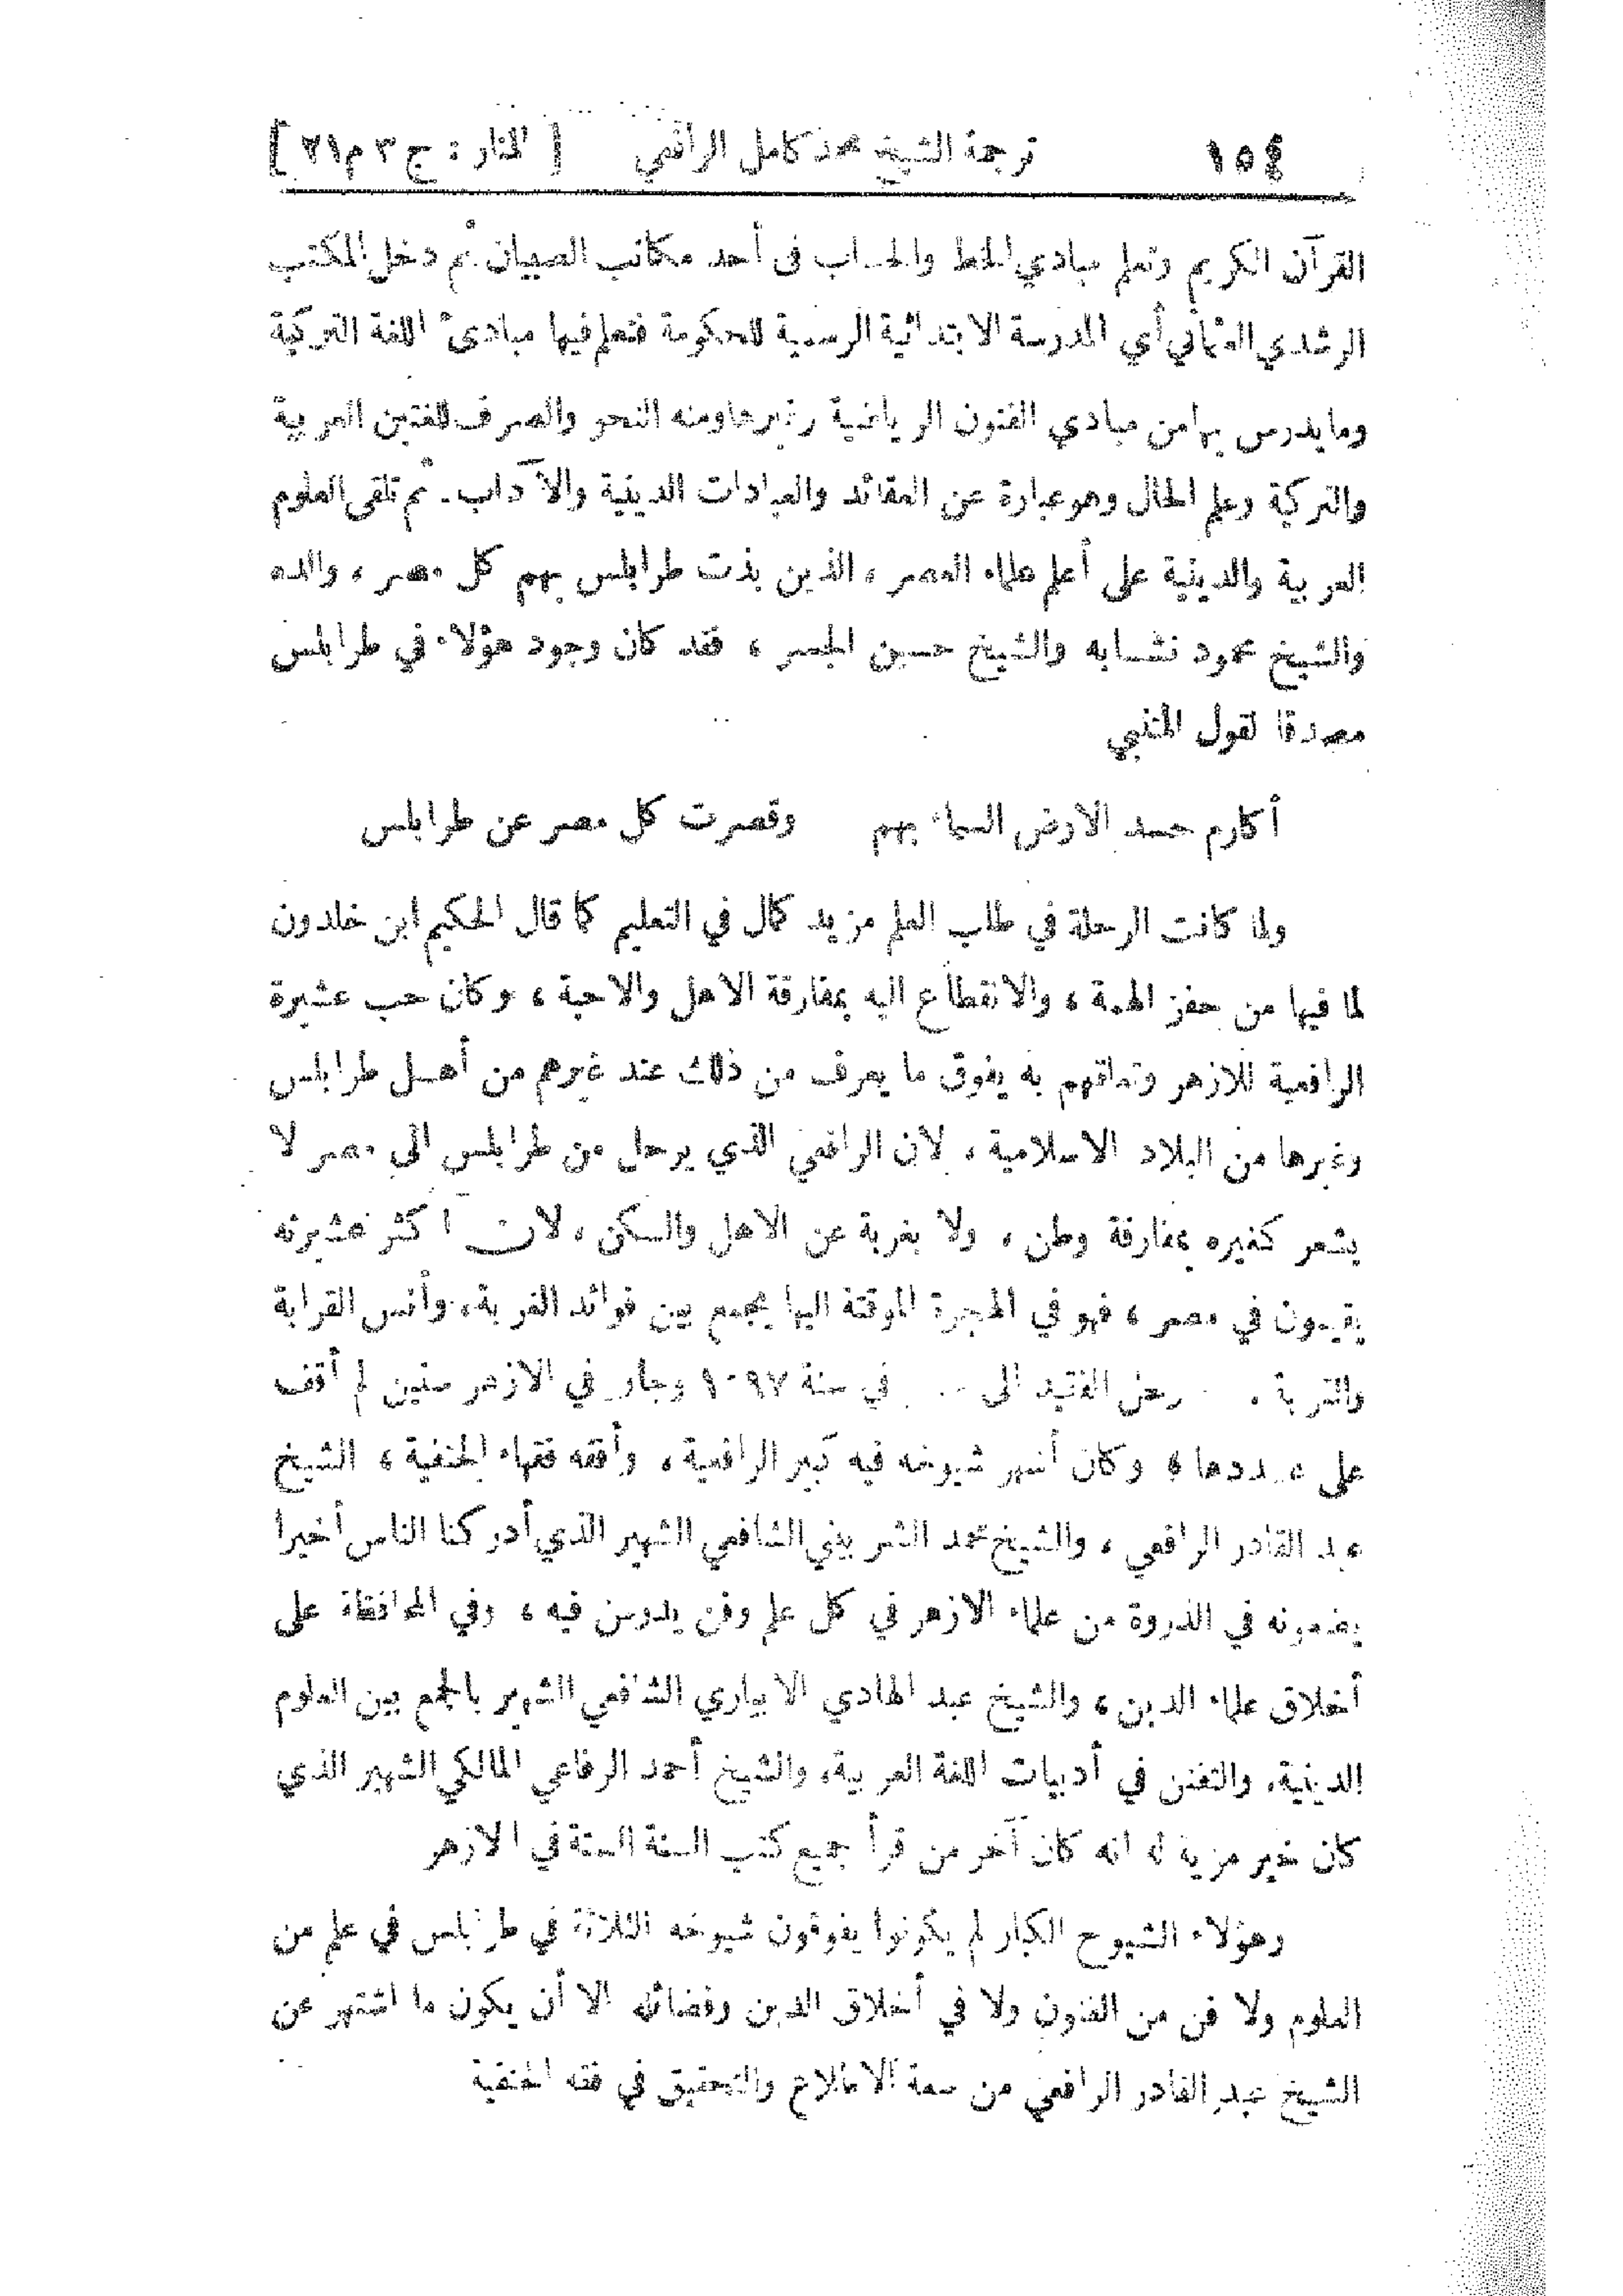 ١٥٤ ترجمة الشيخ محمد كامل الرافعي [ المنار : ج ٣ م ٢١ ]
القرآن الكريم وتعلم مبادي الخط والحساب فى أحد مكاتب الصبيان ثم دخل المكتب
الرشدي العثماني أي المدرسة الابتدائية الرسمية للحكومة فتعلم فيها مبادئ اللغة التركية
وما يدرس بها من مبادي الفنون الرياضية وغيرها ومنه النحو والصرف للغتين العربية
والتركية وعلم الحال وهو عبارة عن العقائد والعبادات الدينية والآداب. ثم تلقى العلوم
العربية والدينية على أعلم علماء العصر ، الذين بذت طرابلس بهم كل مصر ، والده
والشيخ محمود نشابه والشيخ حسين الجسر ، فقد كان وجود هؤلاء في طرابلس
مصدقا لقول المتنبي
أكارم حسد الارض السماء بهم وقصرت كل مصر عن طرابلس
ولما كانت الرحلة في طلب العلم مزيد كمال في التعليم كما قال الحكيم ابن خلدون
لما فيها من حفز الهمة ، والانقطاع اليه بمفارقة الاهل والاحبة ، وكان حب عشيرة
الرافعية للازهر وتعلقهم به يفوق ما يعرف من ذلك عند غيرهم من أهل طرابلس
وغيرها من البلاد الاسلامية ، لان الرافعي الذي يرحل من طرابلس الى مصر لا
يشعر كغيره بمفارقة وطن ، ولا بغربة عن الاهل والسكن ، لان أكثر عشيرته
يقيمون في مصر ، فهو في الهجرة الموقتة اليها يجمع بين فوائد الغربة ، وأنس القرابة
والتربة . رحل الفقيد الى في سنة ١٠٩٧ وجاور في الازهر سنين لم أقف
على عددها ، وكان أشهر شيوخه فيه كبير الرافعية ، وأفقه فقهاء الحنفية ، الشيخ
عبد القادر الرافعي ، والشيخ محمد الشربيني الشافعي الشهير الذي أدركنا الناس أخيرا
يضعونه في الذروة من علماء الازهر في كل علم وفن يدرس فيه ، وفي المحافظة على
أخلاق علماء الدين ، والشيخ عبد الهادي الابياري الشافعي الشهير بالجمع بين العلوم
الدينية، والتفنن في أدبيات اللغة العربية، والشيخ أحمد الرفاعي المالكي الشهير الذي
كان خير مزية له انه كان آخر من قرأ جميع كتب السنة الستة في الازهر
وهؤلاء الشيوخ الكبار لم يكونوا يفوقون شيوخه الثلاثة في طرابلس في علم من
العلوم ولا فن من الفنون ولا في أخلاق الدين وفضائله الا أن يكون ما اشتهر عن
الشيخ عبد القادر الرافعي من سعة الاطلاع والتحقيق في فقه الحنفية